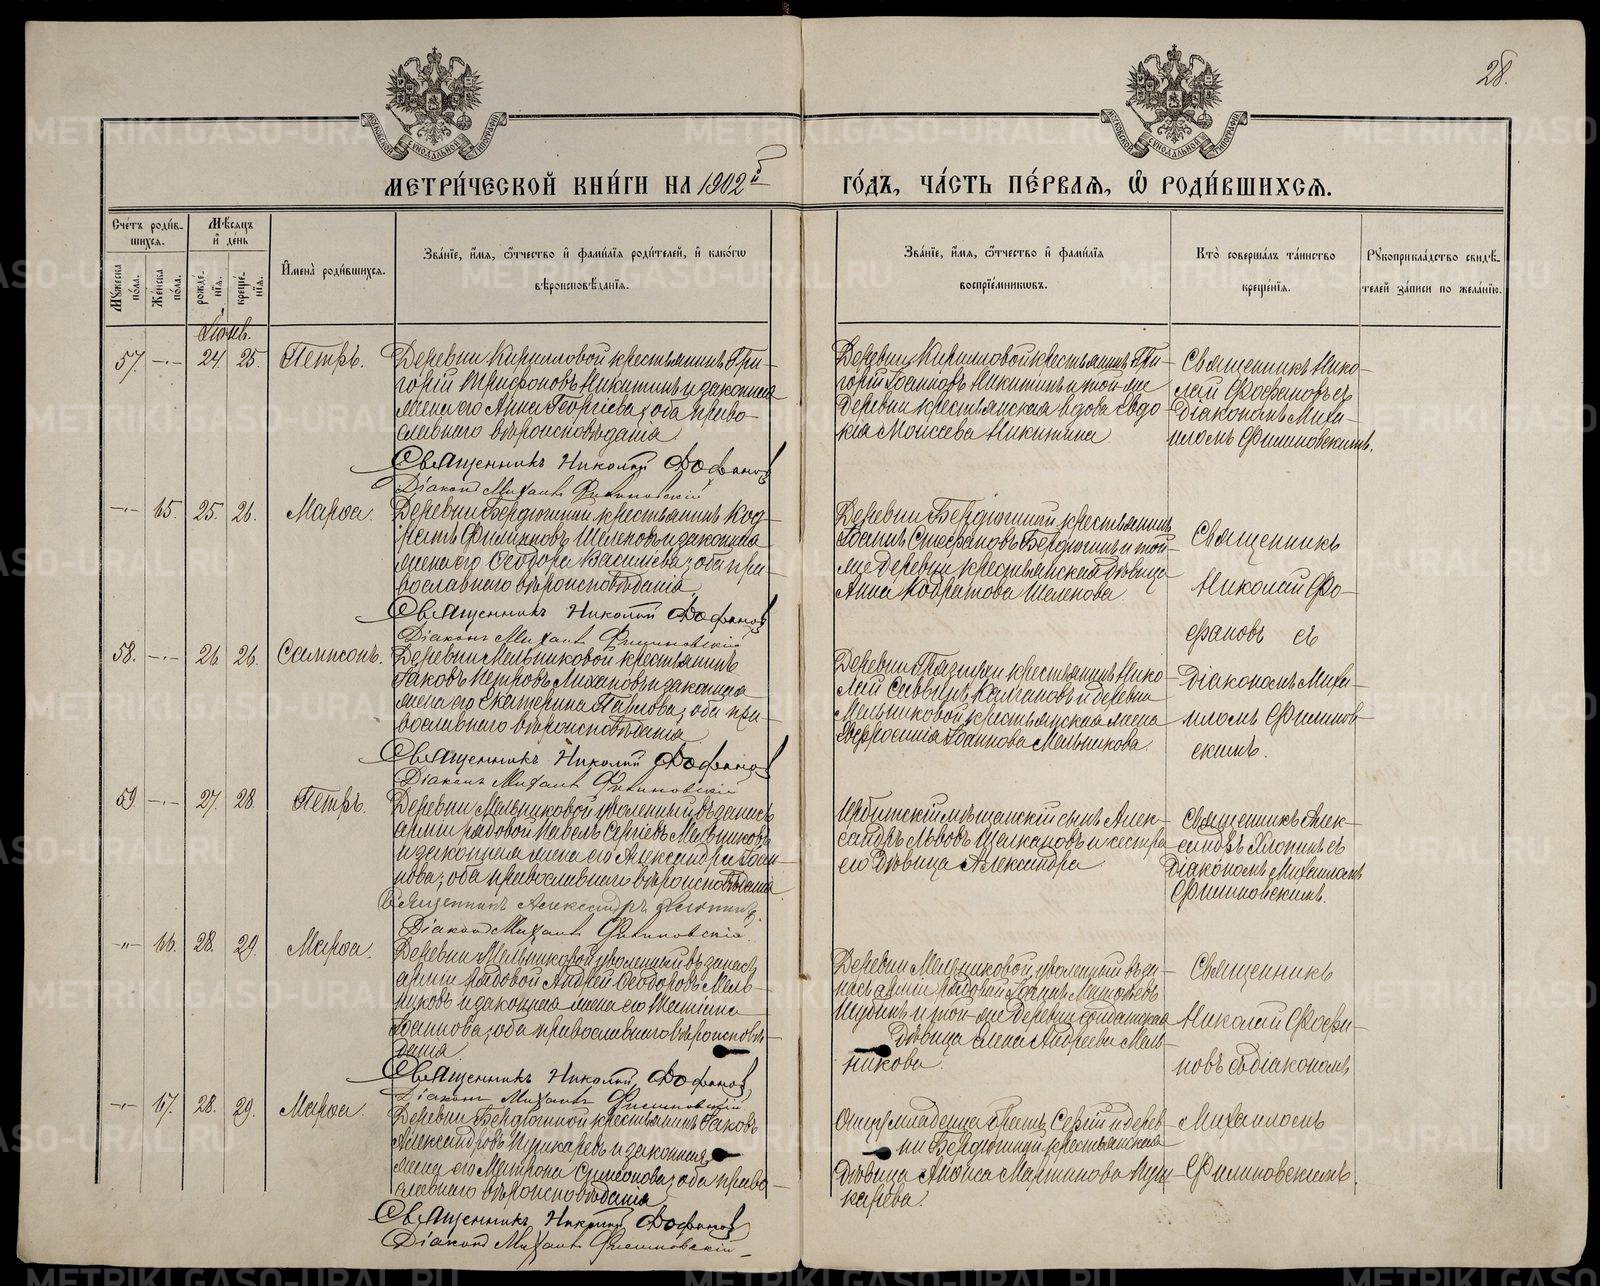 28.
МЕТРИ́ЧЕСКОЙ КНИ́ГИ НА 1902й
ГО́ДЪ, ЧА́СТЬ ПЕ́РВАЯ, Ѡ҆ РОДИ́ВШИХСЯ.
Сче́тъ роди́в-
шихся.
Мѣсяцъ
и҆ де́нь
Му́жеска по́ла.
Же́нска по́ла.
рожде́-
нїя.
креще́-
нїя.
И҆мена̀ роди́вшихся.
Зва́нїе, и҆́мя, ѻ҆́тчество и҆ фами́лїя роди́телей, и҆ како́гѡ
вѣроисповѣ́данїя.
Зва́нїе, и҆́мя, ѻ҆́тчество и҆ фами́лїя
воспрїе́мникѡвъ.
Кто̀ соверша́лъ та́инство
креще́нїя.
Рꙋкоприкла́дство свидѣ́-
телей за́писи по жела́нїю.
57. 24. 25. Петръ.
Деревни Кирилловой крестьянинъ Гри-
горій Трифоновъ Никитинъ и законная
жена его Анна Георгіева; оба право-
славнаго вѣроисповѣданія
Священникъ Николай Фофановъ
Діаконъ Михаилъ Филиновскій
Деревни Кирилловой крестьянинъ Гри-
горій Іоанновъ Никитинъ и той-же
деревни крестьянская вдова Евдо-
кія Моисеева Никитина
Священникъ Нико-
лай Фофановъ съ
діакономъ Миха-
иломъ Филиновскимъ.
65. 25. 26. Марѳа.
Деревни Бердюгиной крестьянинъ Код-
ратъ Филипповъ Шеленовъ и законная
жена его Ѳеодора Васильева; оба пра-
вославнаго вѣроисповѣданія
Священникъ Николай Фофановъ
Діаконъ Михаилъ Филиновскій
Деревни Бердюгиной крестьянинъ
Іоаннъ Стефановъ Бердюгинъ и той-
же деревни крестьянская дѣвица
Анна Кодратова Шеленова
Священникъ
Николай Фо-
фановъ съ
58. 26. 26. Сампсонъ.
Деревни Мельниковой крестьянинъ
Іаковъ Петровъ и законная
жена его Екатерина Павлова; оба пра-
вославнаго вѣроисповѣданія
Священникъ Николай Фофановъ
Діаконъ Михаилъ Филиновскій
крестьянинъ Нико-
лай и деревни
Мельниковой крестьянская жена
Евфросинія Іоаннова Мельникова
Діакономъ Миха-
иломъ Филинов-
скимъ.
59. 27. 28. Петръ.
Деревни Мельниковой уволенный въ запасъ
арміи рядовой Павелъ Сергіевъ Мельниковъ
и законная жена его Александра Іоан-
нова; оба православнаго вѣроисповѣданія
Священникъ Александръ Хлопинъ
Діаконъ Михаилъ Филиновскій
Ирбитскій мѣщанскій сынъ Алек-
сандръ Львовъ Шалкановъ и сестра
его дѣвица Александра
Священникъ Алек-
сандръ Хлопинъ съ
діакономъ Михаиломъ
Филиновскимъ.
66. 28. 29. Марѳа.
Деревни Мельниковой уволенный въ запасъ
арміи рядовой Андрей Ѳеодоровъ Мель-
никовъ и законная жена его
Іоаннова; оба православнаго вѣроисповѣ-
данія
Священникъ Николай Фофановъ
Діаконъ Михаилъ Филиновскій
Деревни Мельниковой уволенный въ за-
пасъ арміи рядовой Іоаннъ
и той-же деревни солдатская
дѣвица Елена Андреева Мель-
никова.
Священникъ
Николай Фофа-
новъ съ діакономъ
67. 28. 29. Марѳа.
Деревни Бердюгиной крестьянинъ Іаковъ
Александровъ Шушкаревъ и законная
жена его Матрона Симеонова; оба право-
славнаго вѣроисповѣданія
Священникъ Николай Фофановъ
Діаконъ Михаилъ Филиновскій
Отцу младенца братъ Сергій и дерев-
ни Бердюгиной крестьянская
дѣвица Мартинова
Михаиломъ
Филиновскимъ.
METRIKI.GASO-URAL.RU